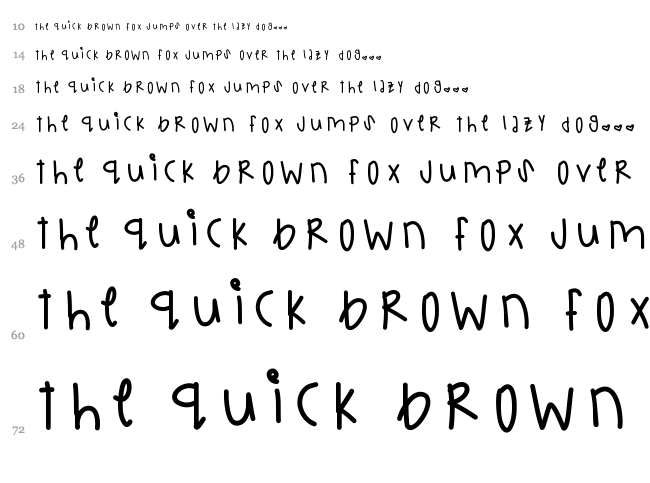 10 the quick brown fox jumps over the lazy dog...
14 the quick brown fox jumps over the lazy dog...
18 the quick brown fox jumps over the lazy dog...
24 the quick brown fox jumps over the lazy dog...
36 the quick brown fox jumps over
48 the quick brown fox jum
60 the quick brown fox
72 the quick brown